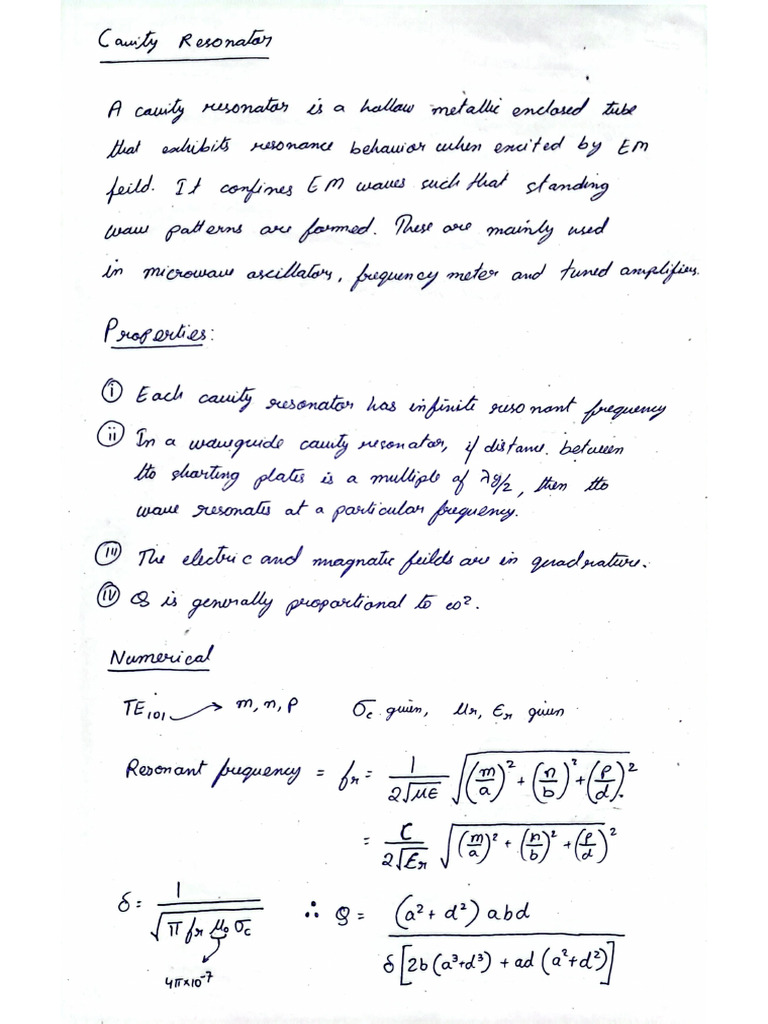 Cavity Resonator
A cavity resonator is a hollow metallic enclosed tube
that exhibits resonance behavior when excited by EM
feild. It confines EM waves such that standing
wave patterns are formed. These are mainly used
in microwave oscillators, frequency meter and tuned amplifiers.
Properties:
(i) Each cavity resonator has infinite resonant frequency
(ii) In a waveguide cavity resonator, if distance between
the shorting plates is a multiple of λg/2, then the
wave resonates at a particular frequency.
(iii) The electric and magnetic feilds are in quadrature.
(iv) Q is generally proportional to ω².
Numerical
TE₁₀₁ → m, n, p   σc given, μr, εr given
Resonant frequency = fr = 1/(2√με) √((m/a)² + (n/b)² + (p/d)²)
= C/(2√εr) √((m/a)² + (n/b)² + (p/d)²)
δ = 1/√(π fr μ₀ σc)   ∴ Q = (a² + d²) abd / δ[2b(a³+d³) + ad(a²+d²)]
4π×10⁻⁷